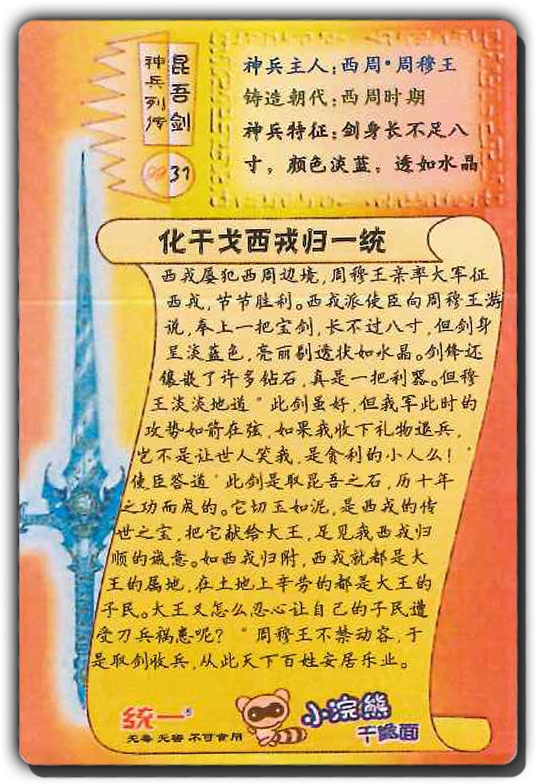 神兵列传
昆吾剑
31
神兵主人:西周·周穆王
铸造朝代:西周时期
神兵特征:剑身长不足八
寸,颜色淡蓝,透如水晶
化干戈西戎归一统
西戎屡犯西周边境,周穆王亲率大军征
西戎,节节胜利。西戎派使臣向周穆王游
说,奉上一把宝剑,长不过八寸,但剑身
呈淡蓝色,亮丽剔透状如水晶。剑锋还
镶嵌了许多钻石,真是一把利器。但穆
王淡淡地道“此剑虽好,但我军此时的
攻势如箭在弦,如果我收下礼物退兵,
岂不是让世人笑我,是贪利的小人么!’
使臣答道‘此剑是取昆吾之石,历十年
之功而成的。它切玉如泥,是西戎的传
世之宝,把它献给大王,足见我西戎归
顺的诚意。如西戎归附,西戎就都是大
王的属地,在土地上辛劳的都是大王的
子民。大王又怎么忍心让自己的子民遭
受刀兵祸患呢?“周穆王不禁动容,于
是取剑收兵,从此天下百姓安居乐业。
统一®
无毒 无害 不可食用
小浣熊
干脆面